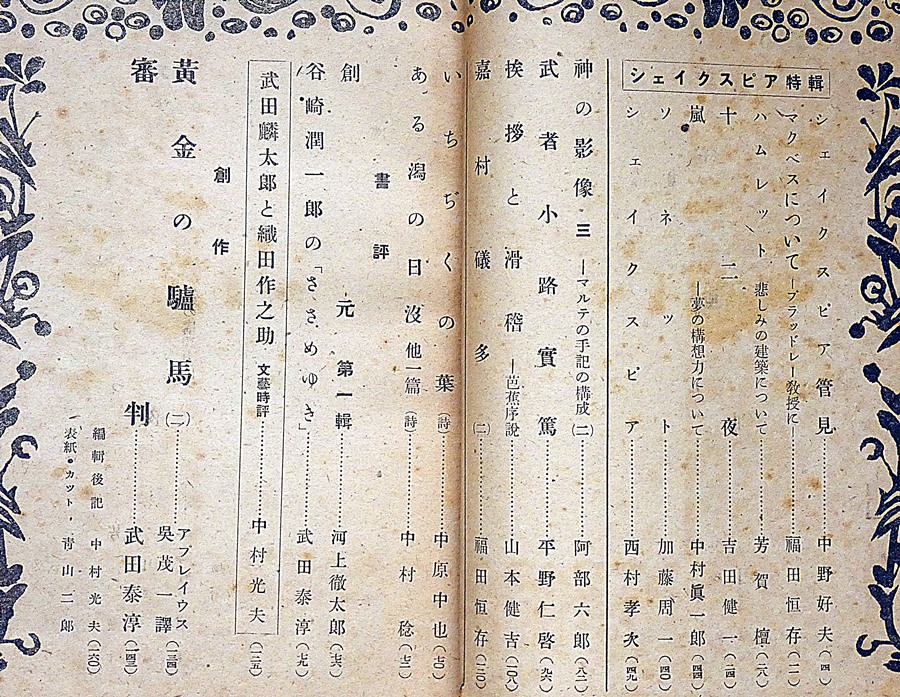 シェイクスピア特輯
シェイクスピア管見……中野好夫（四）
マクベスについて―ブラッドレー教授に―……福田恒存（一一）
ハムレット 悲しみの建築について……芳賀檀（一八）
十二夜……吉田健一（二四）
嵐―夢の構想力について……中村眞一郎（四四）
ソネット……加藤周一（四〇）
シェイクスピア……西村孝次（四九）
神の影像 三 ―マルテの手記の構成（二）……阿部六郎（八二）
武者小路實篤……平野仁啓（九六）
挨拶と滑稽―芭蕉序説……山本健吉（一〇八）
嘉村礒多（二）……福田恒存（一二〇）
いちぢくの葉（詩）……中原中也（七二）
ある潟の日沒 他一篇（詩）……中村稔（七三）
書評
創元 第一輯……河上徹太郎（七六）
谷崎潤一郎の「さゝめゆき」……武田泰淳（七九）
武田麟太郎と織田作之助 文藝時評……中村光夫（一三五）
創作
黄金の驢馬（二）……アプレイウス 吳茂一譯（一三四）
審判……武田泰淳（一四三）
編輯後記 中村光夫（一六〇）
表紙・カット・靑山二郎